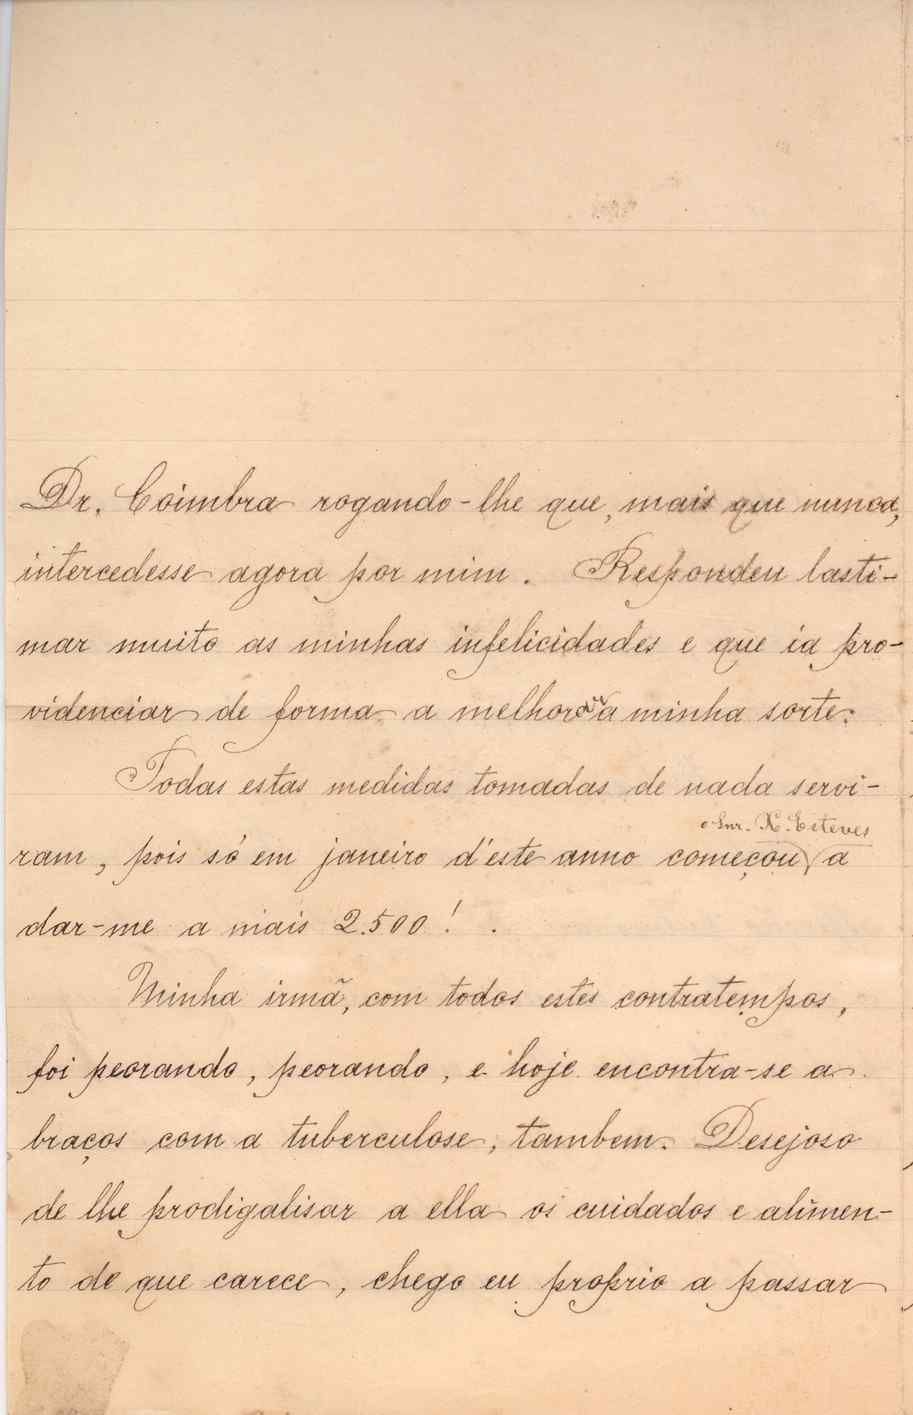 Dr. Coimbra rogando-lhe que, mais que nunca,
intercedesse agora por mim. Respondeu lasti-
mar muito as minhas infelicidades e que ia pro-
videnciar de forma a melhorar a minha sorte.
Todas estas medidas tomadas de nada servi-
o Snr. X. Esteves
ram, pois só em janeiro d'este anno começou a
dar-me a mais 2.500! .
Minha irmã, com todos estes contratempos,
foi peorando, peorando, e hoje encontra-se a
braços com a tuberculose, tambem. Desejoso
de lhe prodigalisar a ella os cuidados e alimen-
to de que carece, chego eu proprio a passar